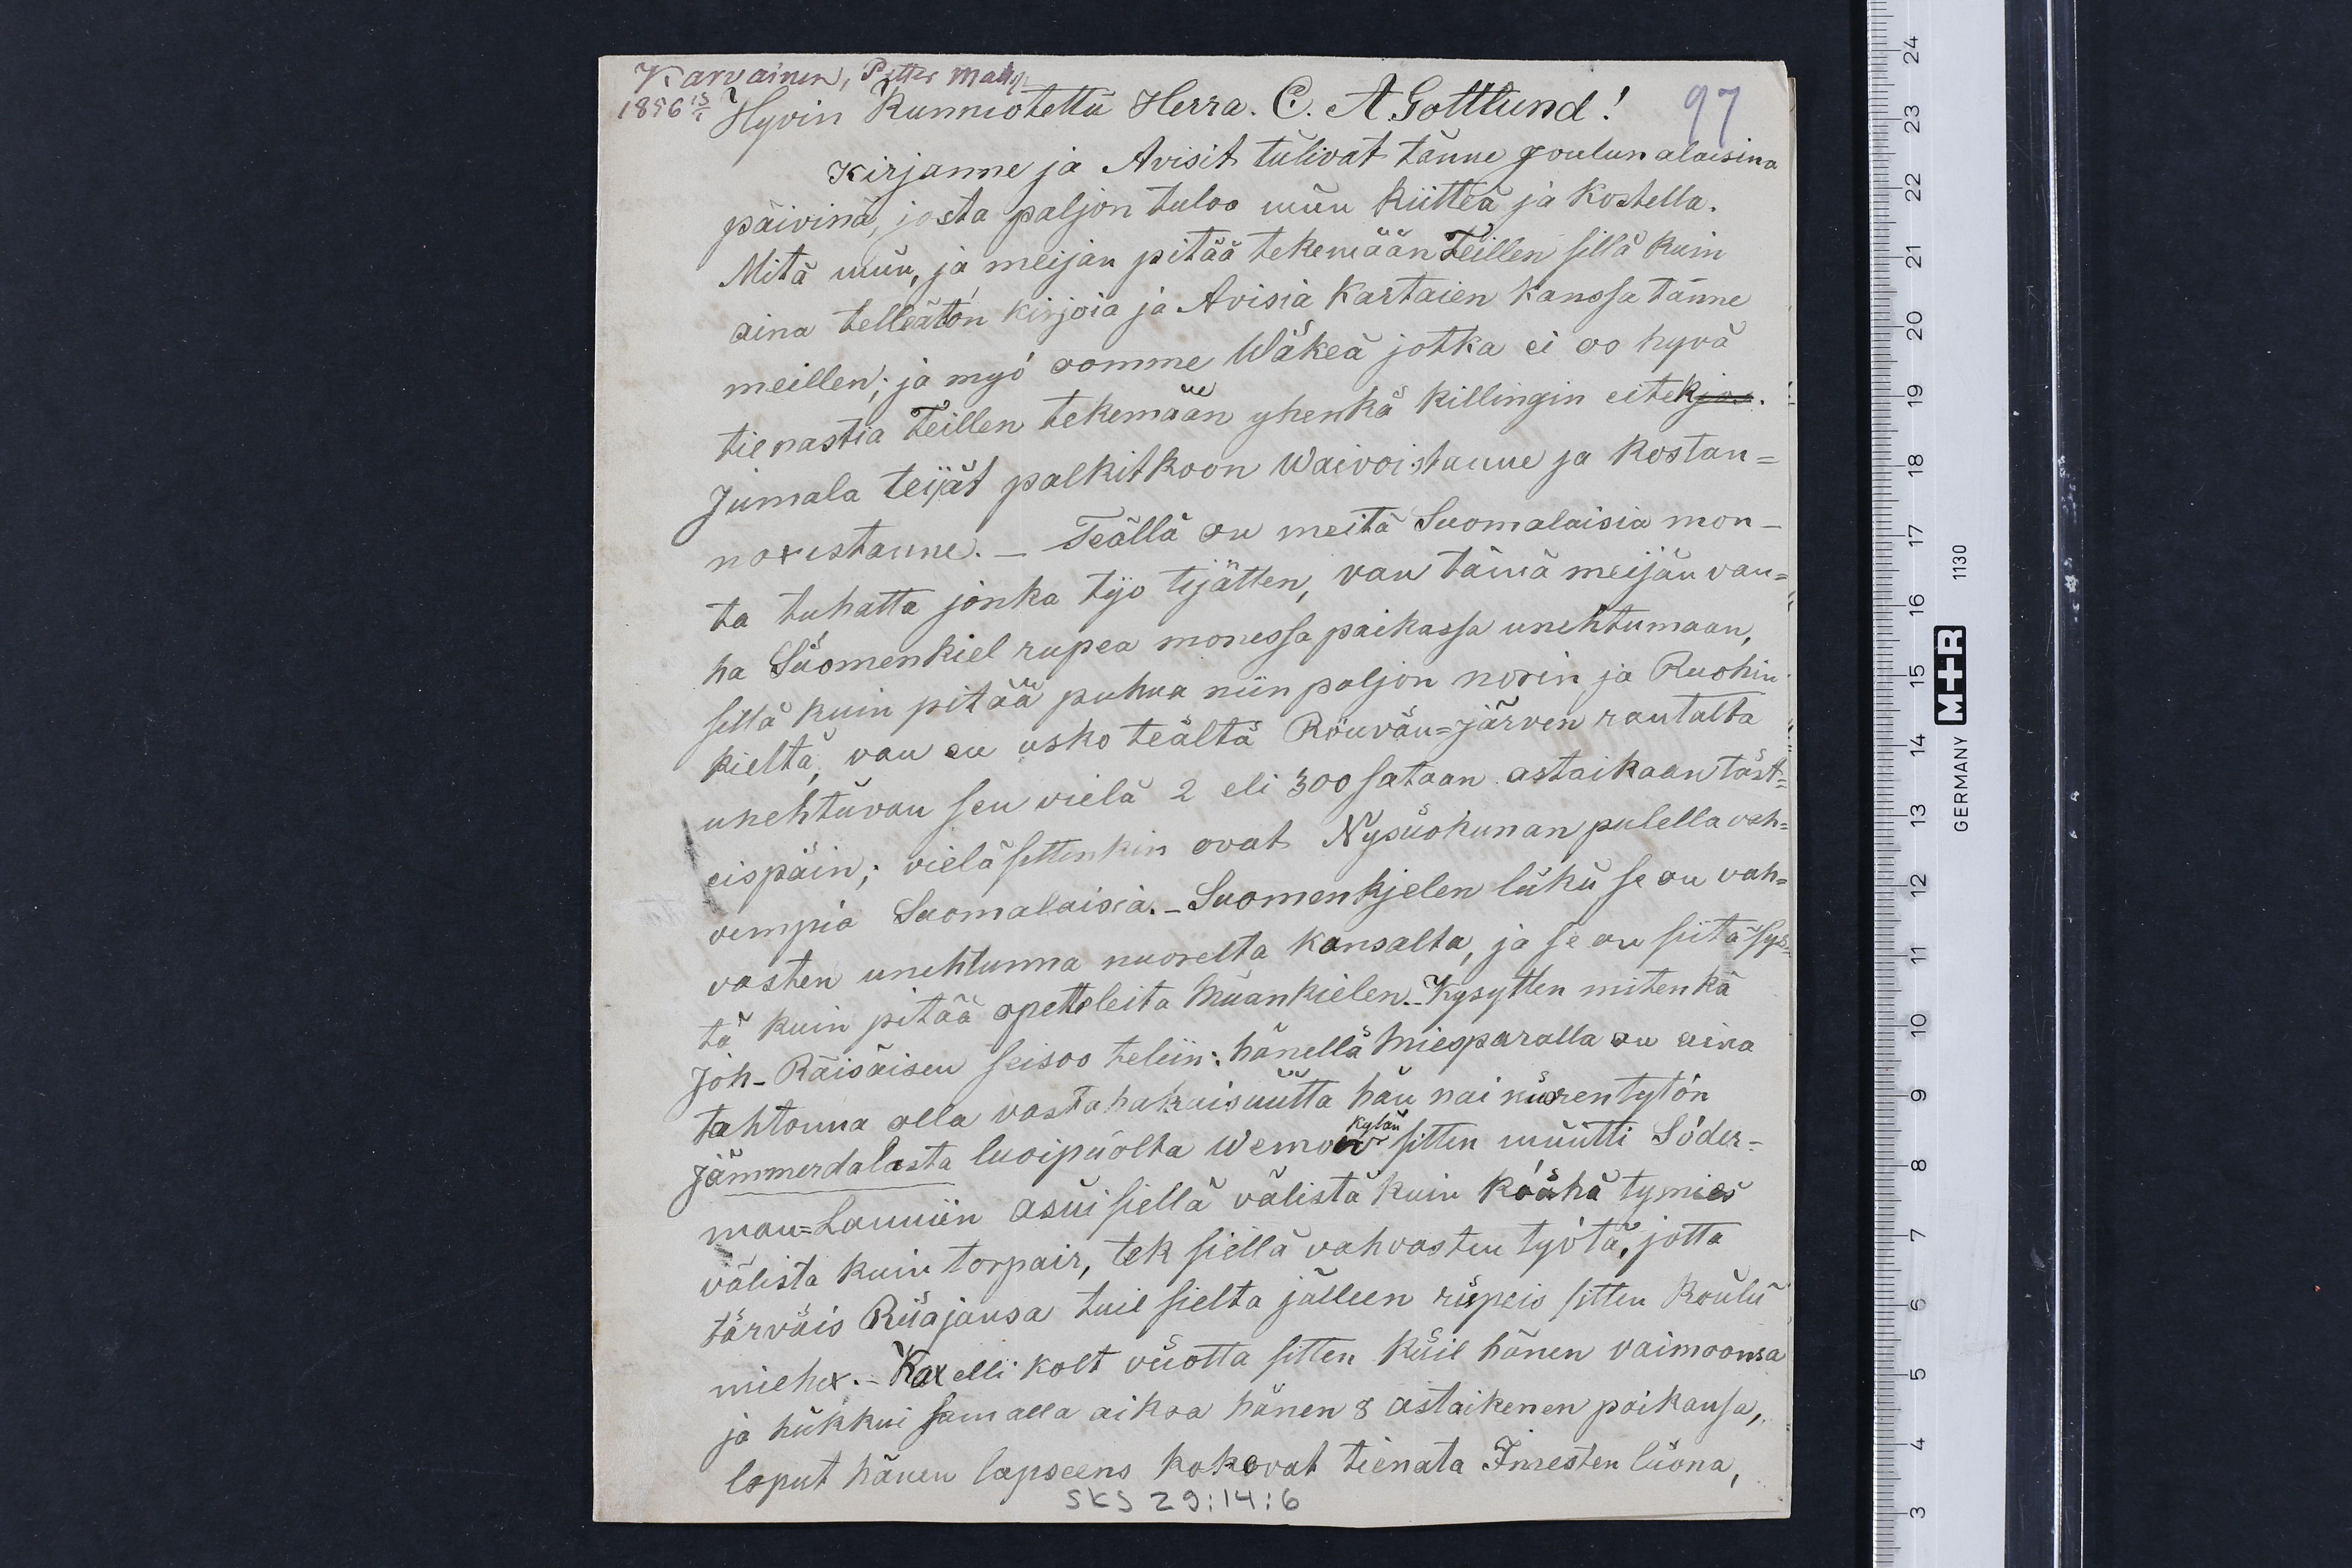 Karvainen, Petter
1856 15/1
97
Hyvin Kunniotettu Herra. C. A. Gottlund!
Kirjanne ja Avisit tulivat tänne joulun alaisina
päivinä, josta paljon tuloo muu kiitteä ja kostella.
Mitä muu, ja meijän pitää tekemään Teillen sillä kuin
aina telleätön kirjoia ja Avisia Kartaien kanssa tänne
meillen; ja myö oomme Wäkeä jotka ei oo hyvä
tienastia Teillen tekemään yhenkä killingin eitek jos.
Jumala teijät palkitkoon Waivoistanne ja kostan=
noxistanne. _ Teällä on meitä Suomalaisia mon_
ta tuhatta jonka työ tijätten, van tämä meijän van=
ha Suomenkiel rupea monessa paikassa unehtumaan,
sillä kuin pitää puhua niin paljon norin ja Ruohin
kieltä, van en usko teältä Röuvän=järven rautalta
unehtuvan sen vielä 2 eli 300 sataan astaikaan täst=
eispäin; vielä sittenkin ovat Nysuokunan pulella vah=
vempia Suomalaisia._ Suomenkjelen luku se on vah=
vasten unehtunna nuorelta kansalta, ja se on siitä sys=
tä kuin pitää opetteleita Muankielen._ Kysytten mitenkä
Joh_ Räisäisen seisoo teliin: hänellä Miesparalla on aina
tahtonna olla vastahakaisuutta hän nai nuoren tytön
Jämmerdalasta luoipuolta Wemon Kylän sitten muutti Söder=
man=Lanniin asui siellä välistä kuin Köähä tymies
välistä kuin torpair, tek siellä vahvasten työtä, jotta
tärväis Riiajansa tuil sielta jälleen rupeis sitten Koulu
miehex._ Kax elli kolt vuotta sitten kuil hänen vaimoonsa
ja hukkui samalla aikoa hänen 8 astaikenen poikansa,
loput hänen lapseens kokovat tienata Imesten luona,
SKS 29:14:6
24
23
22
21
20
19
18
17
16
15
14
13
12
11
10
9
8
7
6
5
4
3
GERMANY M+R 1130